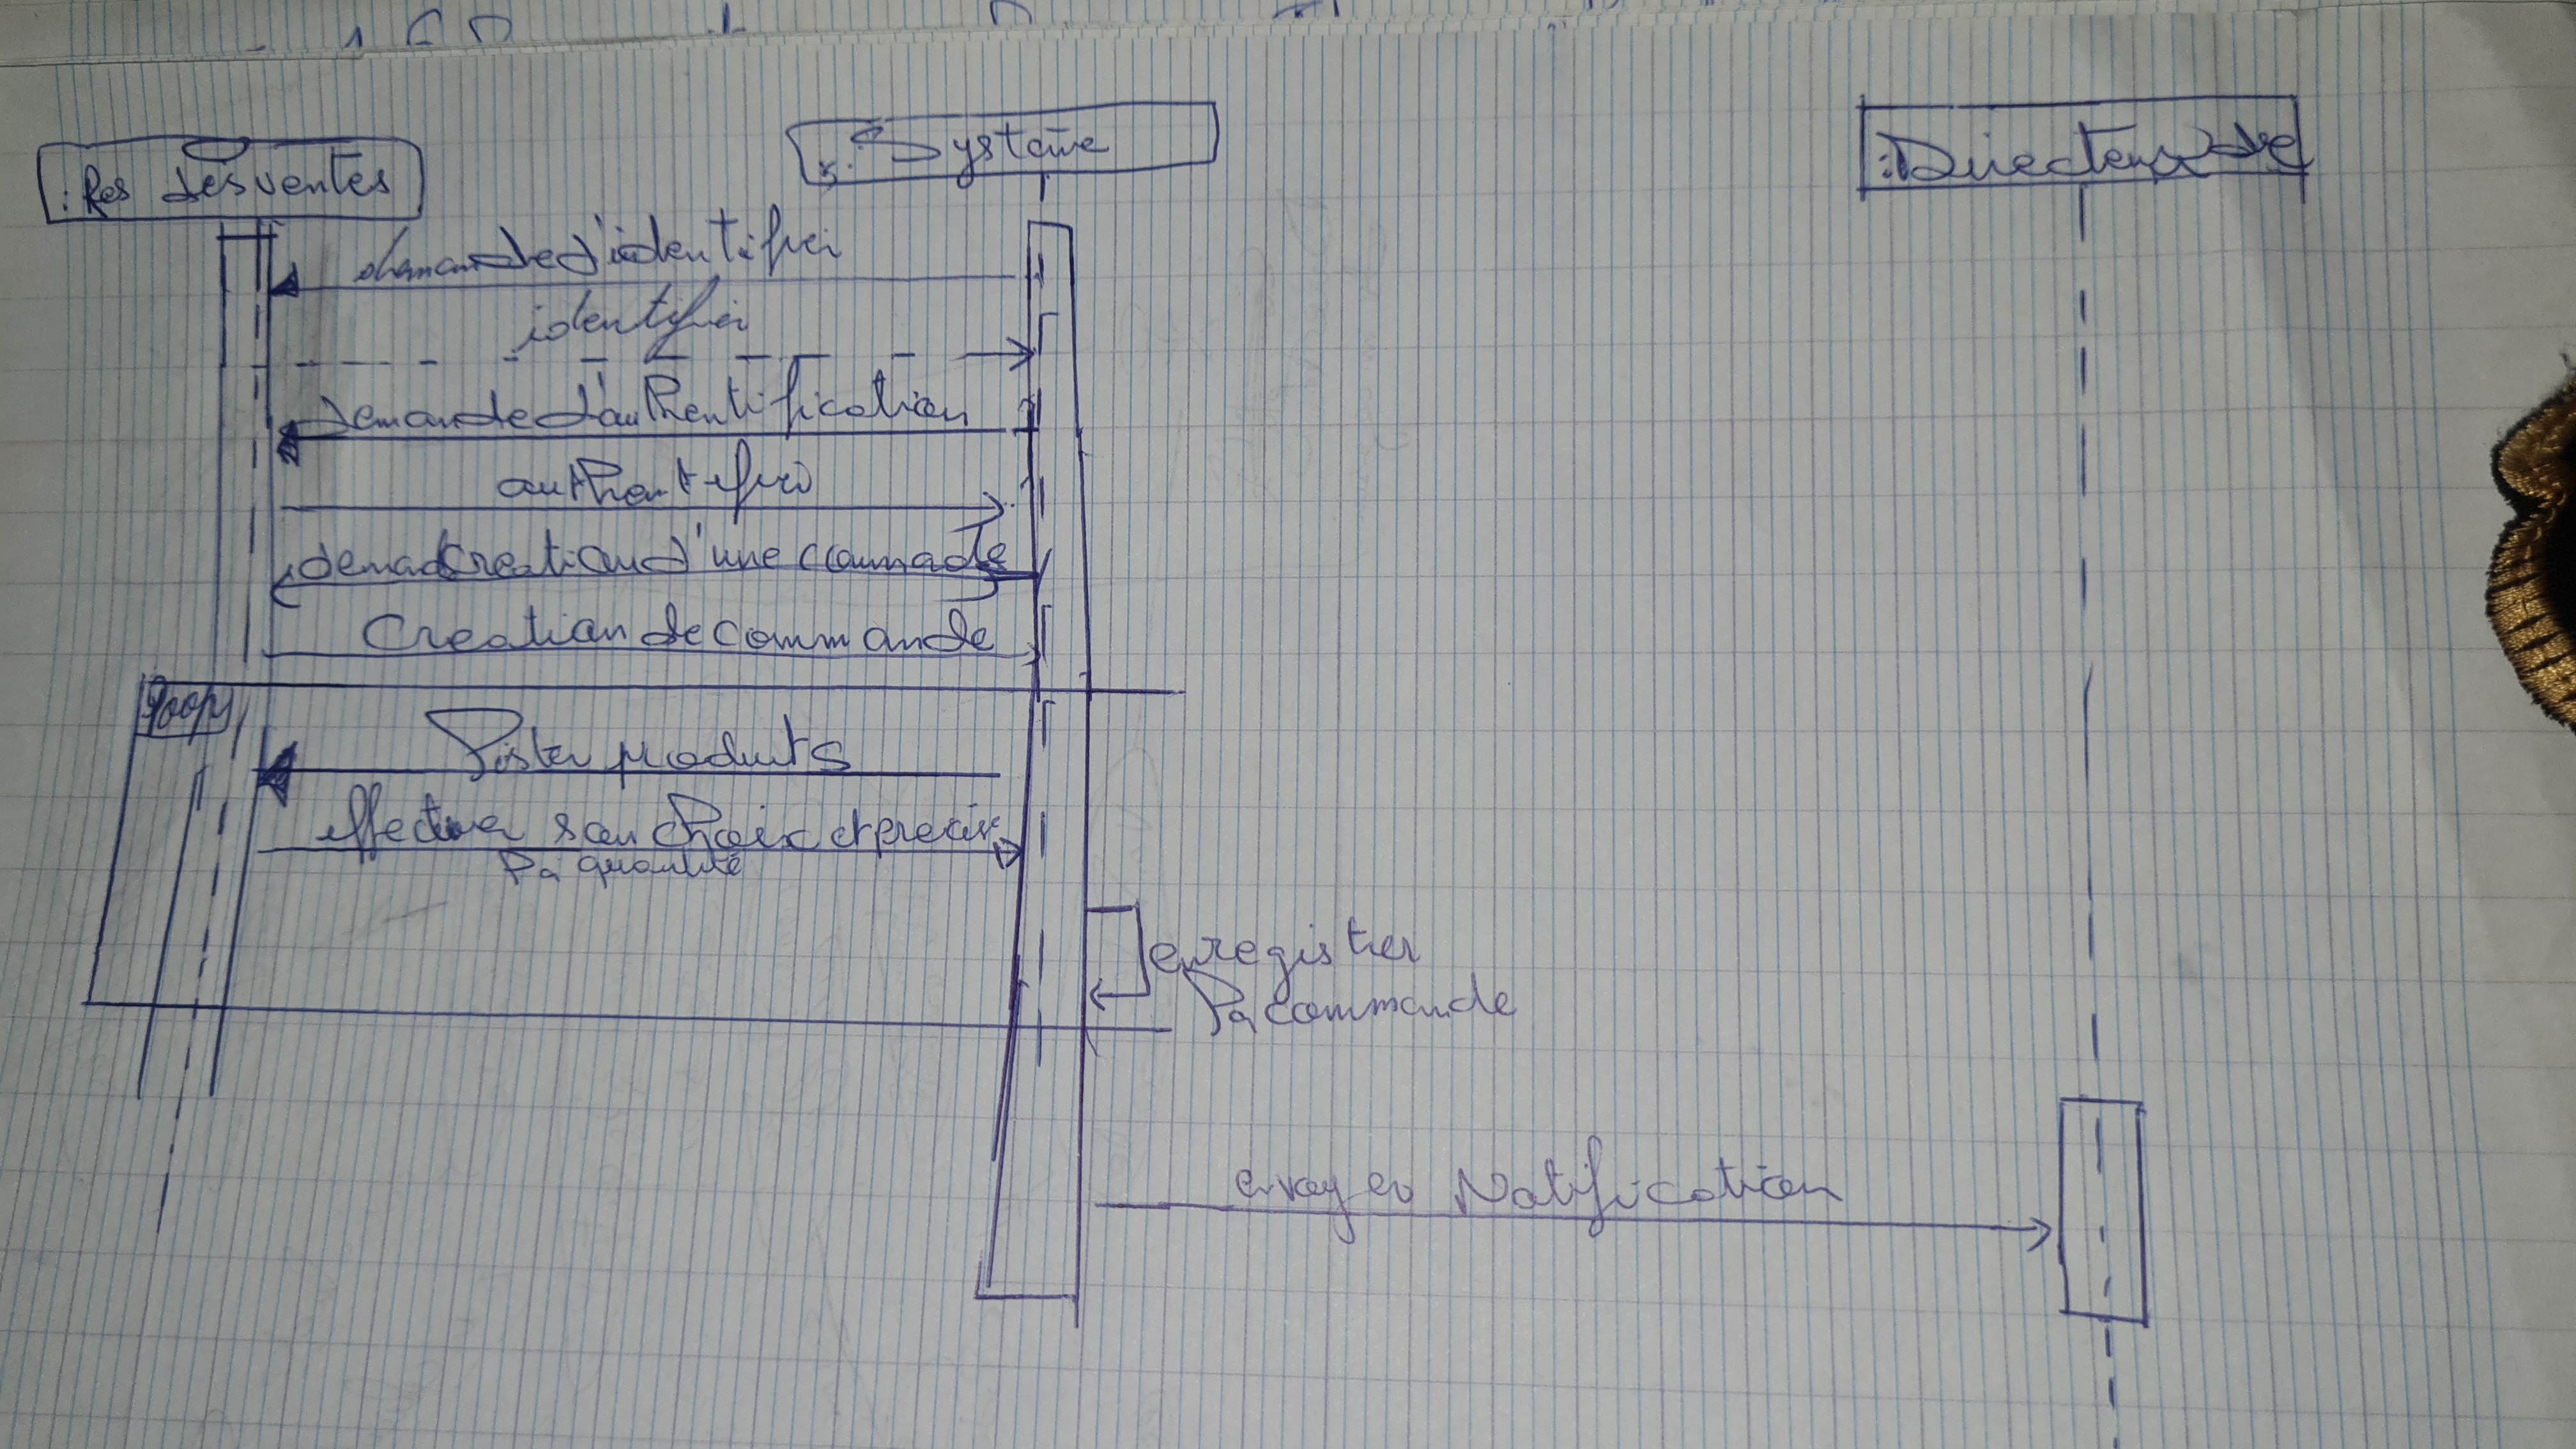 :Res des ventes
:Système
:Directeur
demande d'identifier
identifier
Demande d'authentification
authentifier
Creation de commande
loop
lister produits
effectuer son choix et preciser
la quantité
enregistrer
la commande
envoyer Notification